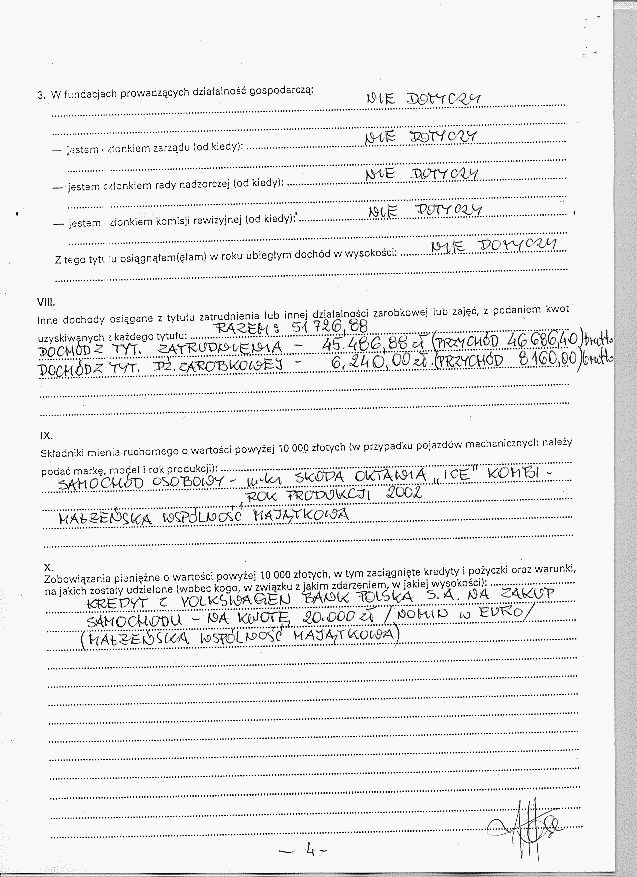 3. W fundacjach prowadzących działalność gospodarczą: NIE DOTYCZY
— jestem członkiem zarządu (od kiedy): NIE DOTYCZY
— jestem członkiem rady nadzorczej (od kiedy): NIE DOTYCZY
— jestem członkiem komisji rewizyjnej (od kiedy): NIE DOTYCZY
Z tego tytułu osiągnąłem(ęłam) w roku ubiegłym dochód w wysokości: NIE DOTYCZY
VIII.
Inne dochody osiągane z tytułu zatrudnienia lub innej działalności zarobkowej lub zajęć, z podaniem kwot
uzyskiwanych z każdego tytułu: RAZEM: 51 726,88
DOCHÓD Z TYT. ZATRUDNIENIA – 45.486,88 zł (PRZYCHÓD 46 686,40) brutto
DOCHÓD Z TYT. DZ. ZAROBKOWEJ – 6,240,00 zł (PRZYCHÓD 8 160,00) brutto
IX.
Składniki mienia ruchomego o wartości powyżej 10 000 złotych (w przypadku pojazdów mechanicznych należy
podać markę, model i rok produkcji):
SAMOCHÓD OSOBOWY – m-ki SKODA OKTAWIA „ICE" KOMBI –
ROK PRODUKCJI 2002
MAŁŻEŃSKA WSPÓLNOŚĆ MAJĄTKOWA
X.
Zobowiązania pieniężne o wartości powyżej 10 000 złotych, w tym zaciągnięte kredyty i pożyczki oraz warunki,
na jakich zostały udzielone (wobec kogo, w związku z jakim zdarzeniem, w jakiej wysokości):
KREDYT Z VOLKSWAGEN BANK POLSKA S.A. NA ZAKUP
SAMOCHODU – NA KWOTĘ 20.000 zł /NOMIN W EURO/
(MAŁŻEŃSKA WSPÓLNOŚĆ MAJĄTKOWA)
– 4 –